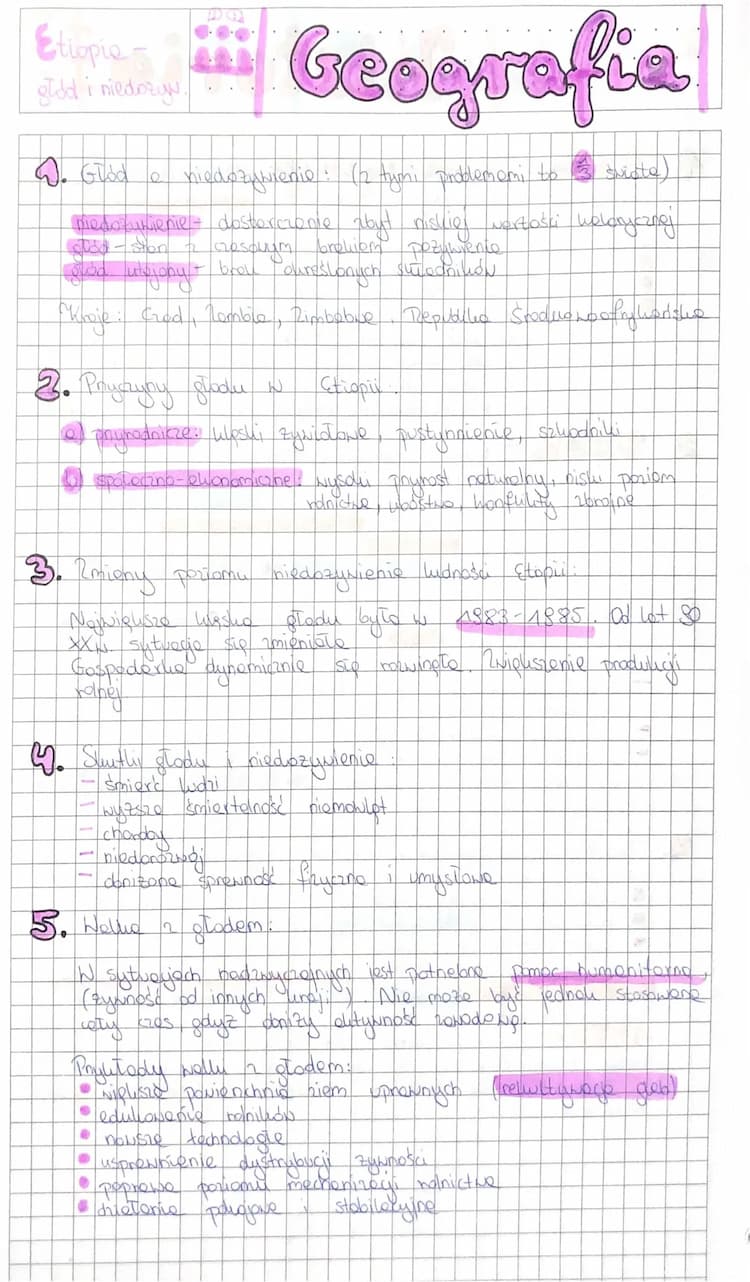 Etiopia -
głód i niedożyw.
Geografia
1. Głód a niedożywienie: (z tymi problemami to 1/3 świata)
niedożywienie - dostarczenie zbyt niskiej wartości kalorycznej
głód - stan z czasowym brakiem pożywienia
głód utajony - brak określonych składników
Kraje: Czad, Zambia, Zimbabwe, Republika Środkowoafrykańska
2. Przyczyny głodu w Etiopii.
a) przyrodnicze: klęski żywiołowe, pustynnienie, szkodniki
b) społeczno-ekonomiczne: wysoki przyrost naturalny, niski poziom
rolnictwa, ubóstwo, konfulity zbrojne
3. Zmiany poziomu niedożywienia ludności Etopii:
Największa klęska głodu była w 1983-1985. Od lat 90
XXw. sytuacja się zmieniała
Gospodarka dynamicznie się rozwinęła. Zwiększenie produkcji
rolnej
4. Skutki głodu i niedożywienia:
- śmierć ludzi
- wyższa śmiertelność niemowląt
- choroby
- niedorozwój
- obniżona sprawność fizyczna i umysłowa
5. Walka z głodem:
W sytuacjach nadzwyczajnych jest potrzebna pomoc humanitarna,
(żywność od innych krajów). Nie może być jednak stosowana
cały czas gdyż obniży aktywność zawodową.
Przykłady walki z głodem:
• większa powierzchnia ziem uprawnych (rekultywacja gleb)
• edukowanie rolników
• nowsze technologie
• usprawnienie dystrybucji żywności
• poprawa poziomu mechanizacji rolnictwa
• działania pokojowe i stabilizacyjne